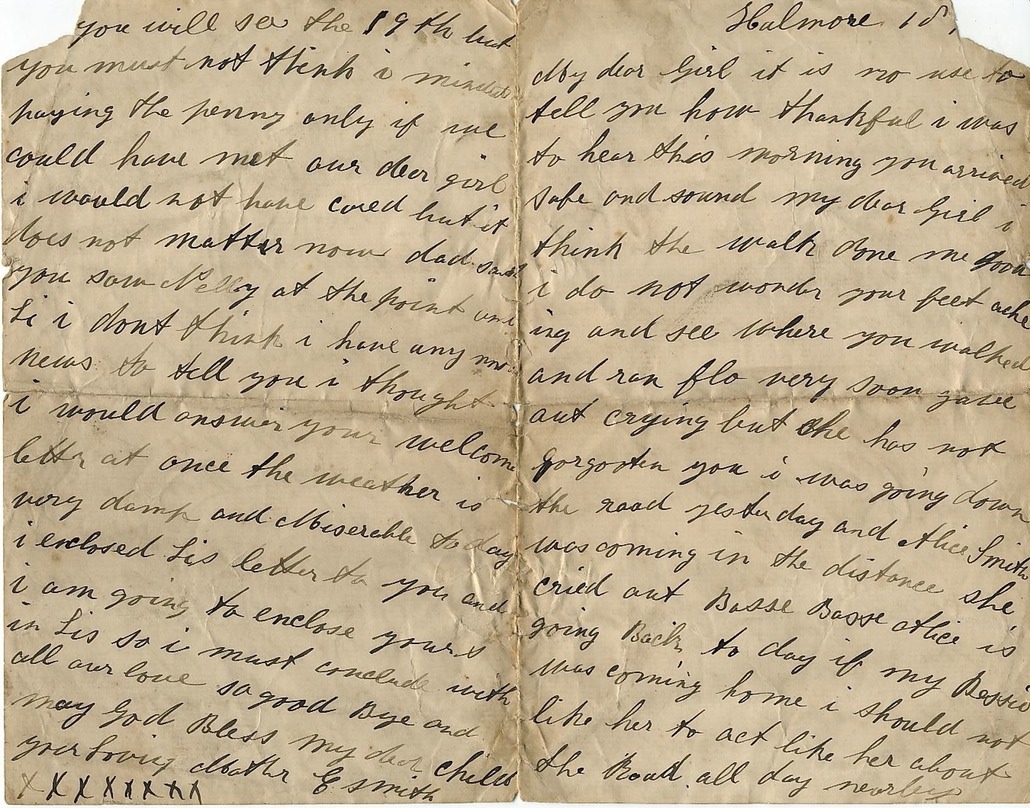 Halmore 18
My dear Girl it is no use to
tell you how thankful i was
to hear this morning you arrived
safe and sound my dear Girl i
think the walk done me good
i do not wonder your feet ache
ing and see where you walked
and ran flo very soon gave
out crying but she has not
gorgooten you i was going down
the road yesterday and Alice Smith
was coming in the distance she
cried out Basse Basse Alice is
going Back to day if my Bessie
was coming home i should not
like her to act like her about
the Road all day nearly
you will see the 19th but
you must not think i minded
paying the penny only if we
could have met our dear girl
i would not have cared but it
does not matter now dad said
you saw Nelly at the point and
Li i dont think i have any
news to tell you i thought
i would answer your welcome
letter at once the weather is
very damp and Miserable to day
i enclosed Lis letter to you and
i am going to enclose yours
in Lis so i must conclude with
all our love so good Bye and
may God Bless my dear child
your loving Mother E Smith
x x x x x x x x